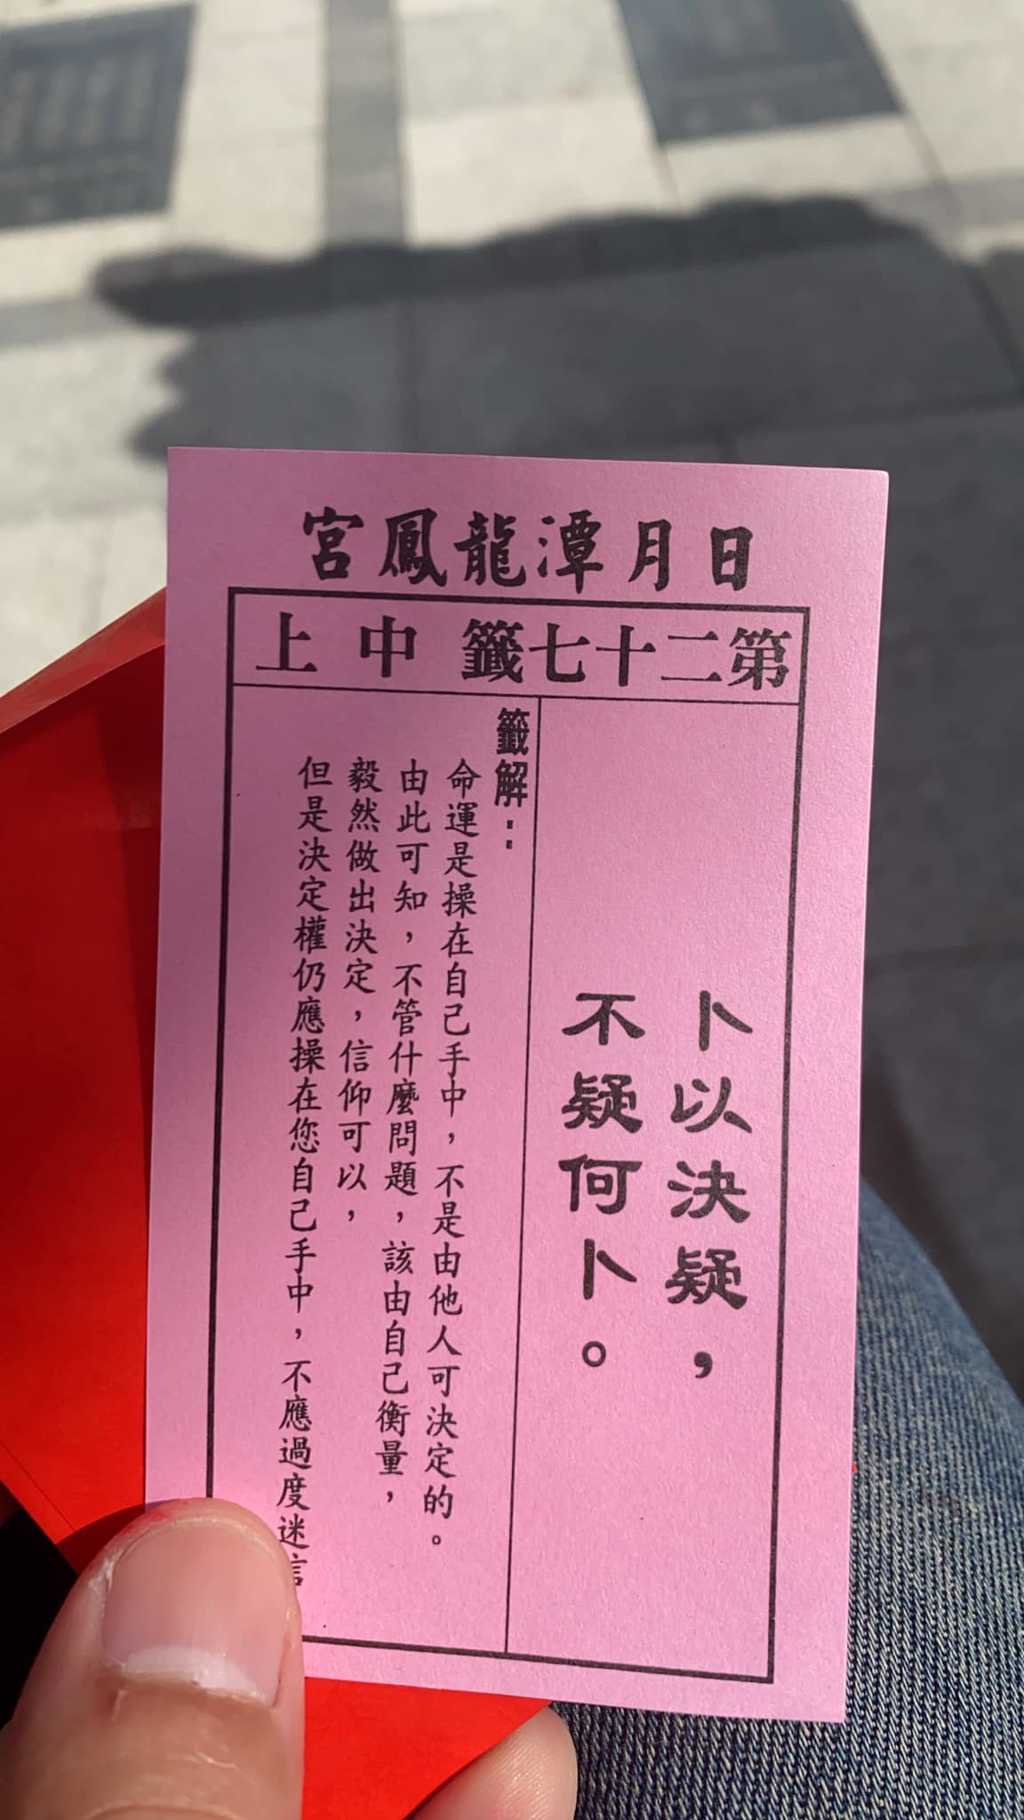 日月潭龍鳳宮
第二十七籤 中上
卜以決疑，
不疑何卜。
籤解：
命運是操在自己手中，不是由他人可決定的。
由此可知，不管什麼問題，該由自己衡量，
毅然做出決定，信仰可以，
但是決定權仍應操在您自己手中，不應過度迷信